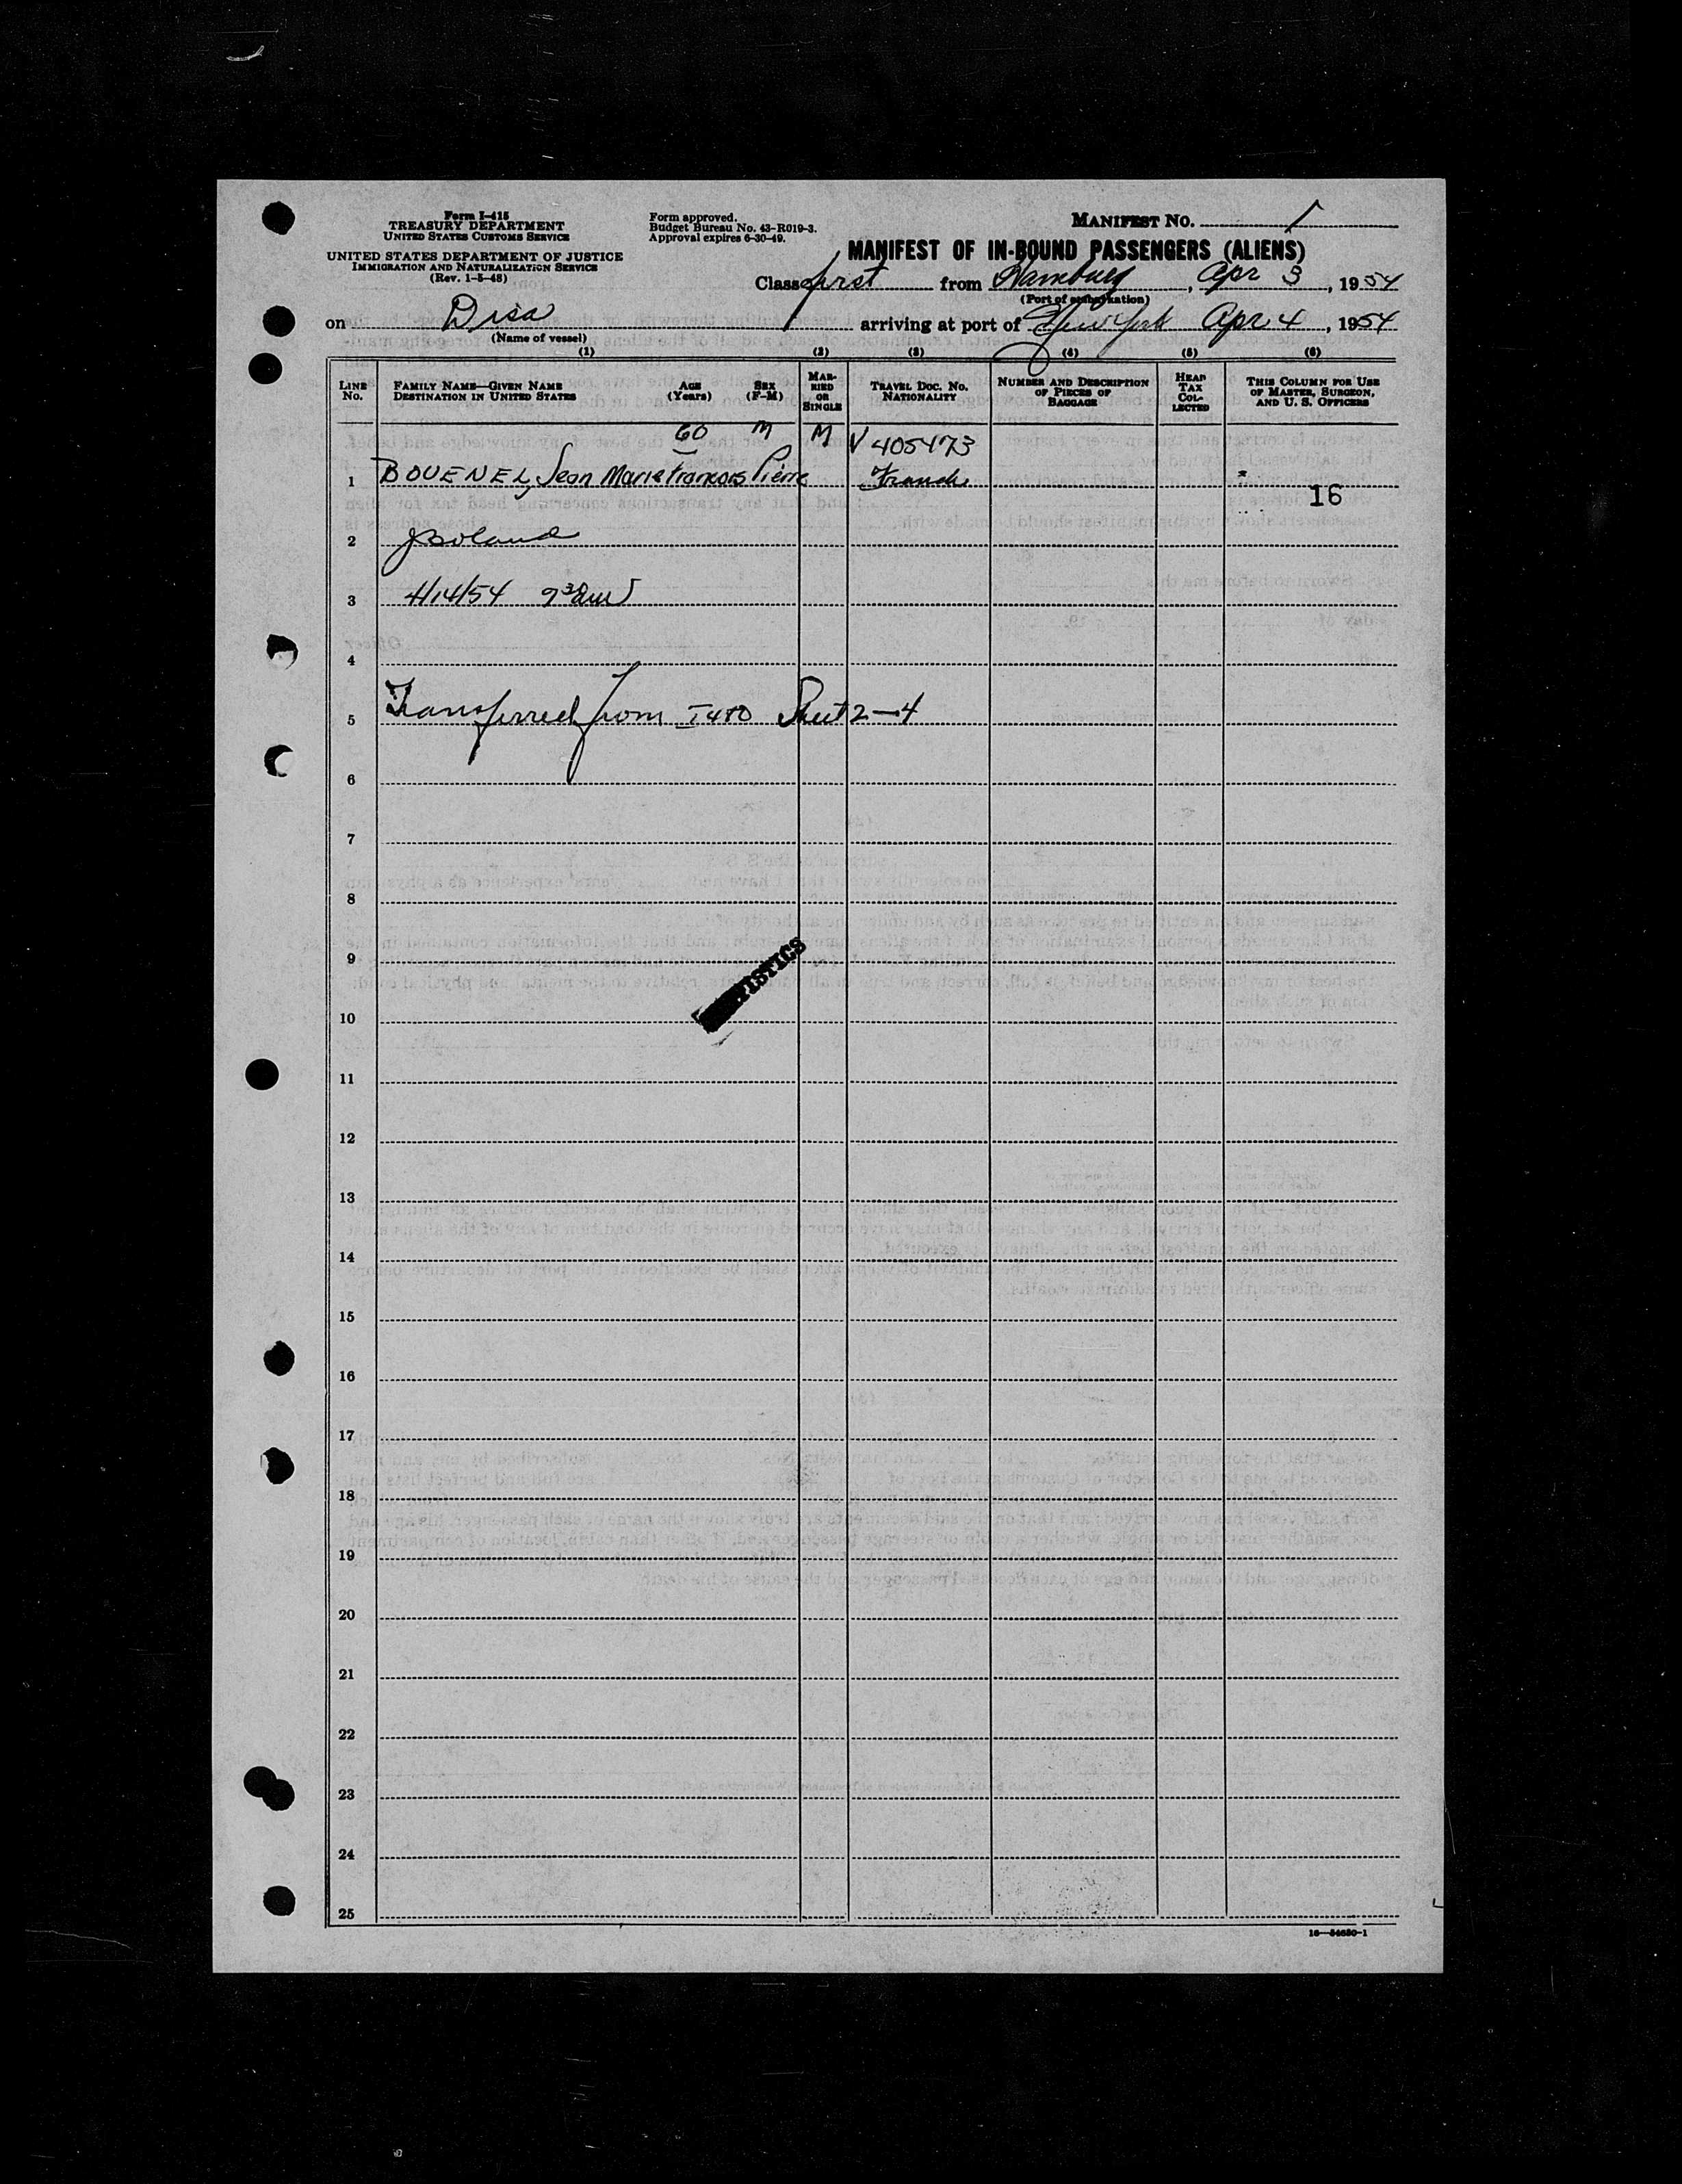 Form I-415
TREASURY DEPARTMENT
UNITED STATES CUSTOMS SERVICE
UNITED STATES DEPARTMENT OF JUSTICE
IMMIGRATION AND NATURALIZATION SERVICE
(Rev. 1-5-48)
Form approved.
Budget Bureau No. 43-R019-3.
Approval expires 6-30-49.
MANIFEST No. 1
MANIFEST OF IN-BOUND PASSENGERS (ALIENS)
Class first from Hamburg, Apr 3, 1954
(Port of embarkation)
on Disa arriving at port of New York Apr 4, 1954
(Name of vessel)
(1) (2) (3) (4) (5) (6)
LINE No.
FAMILY NAME—GIVEN NAME
DESTINATION IN UNITED STATES
AGE (Years)
SEX (F-M)
MARRIED OR SINGLE
TRAVEL DOC. No.
NATIONALITY
NUMBER AND DESCRIPTION OF PIECES OF BAGGAGE
HEAD TAX COLLECTED
THIS COLUMN FOR USE OF MASTER, SURGEON, AND U. S. OFFICERS
60 M M V 405473
1 BOUENEL, Jean Marie Francois Pierre French
16
2 JBoland
3 4/14/54 9 30
4
5 Transferred from I 480 Sheet 2-4
6
7
8
9
STATISTICS
10
11
12
13
14
15
16
17
18
19
20
21
22
23
24
25
16—54650-1